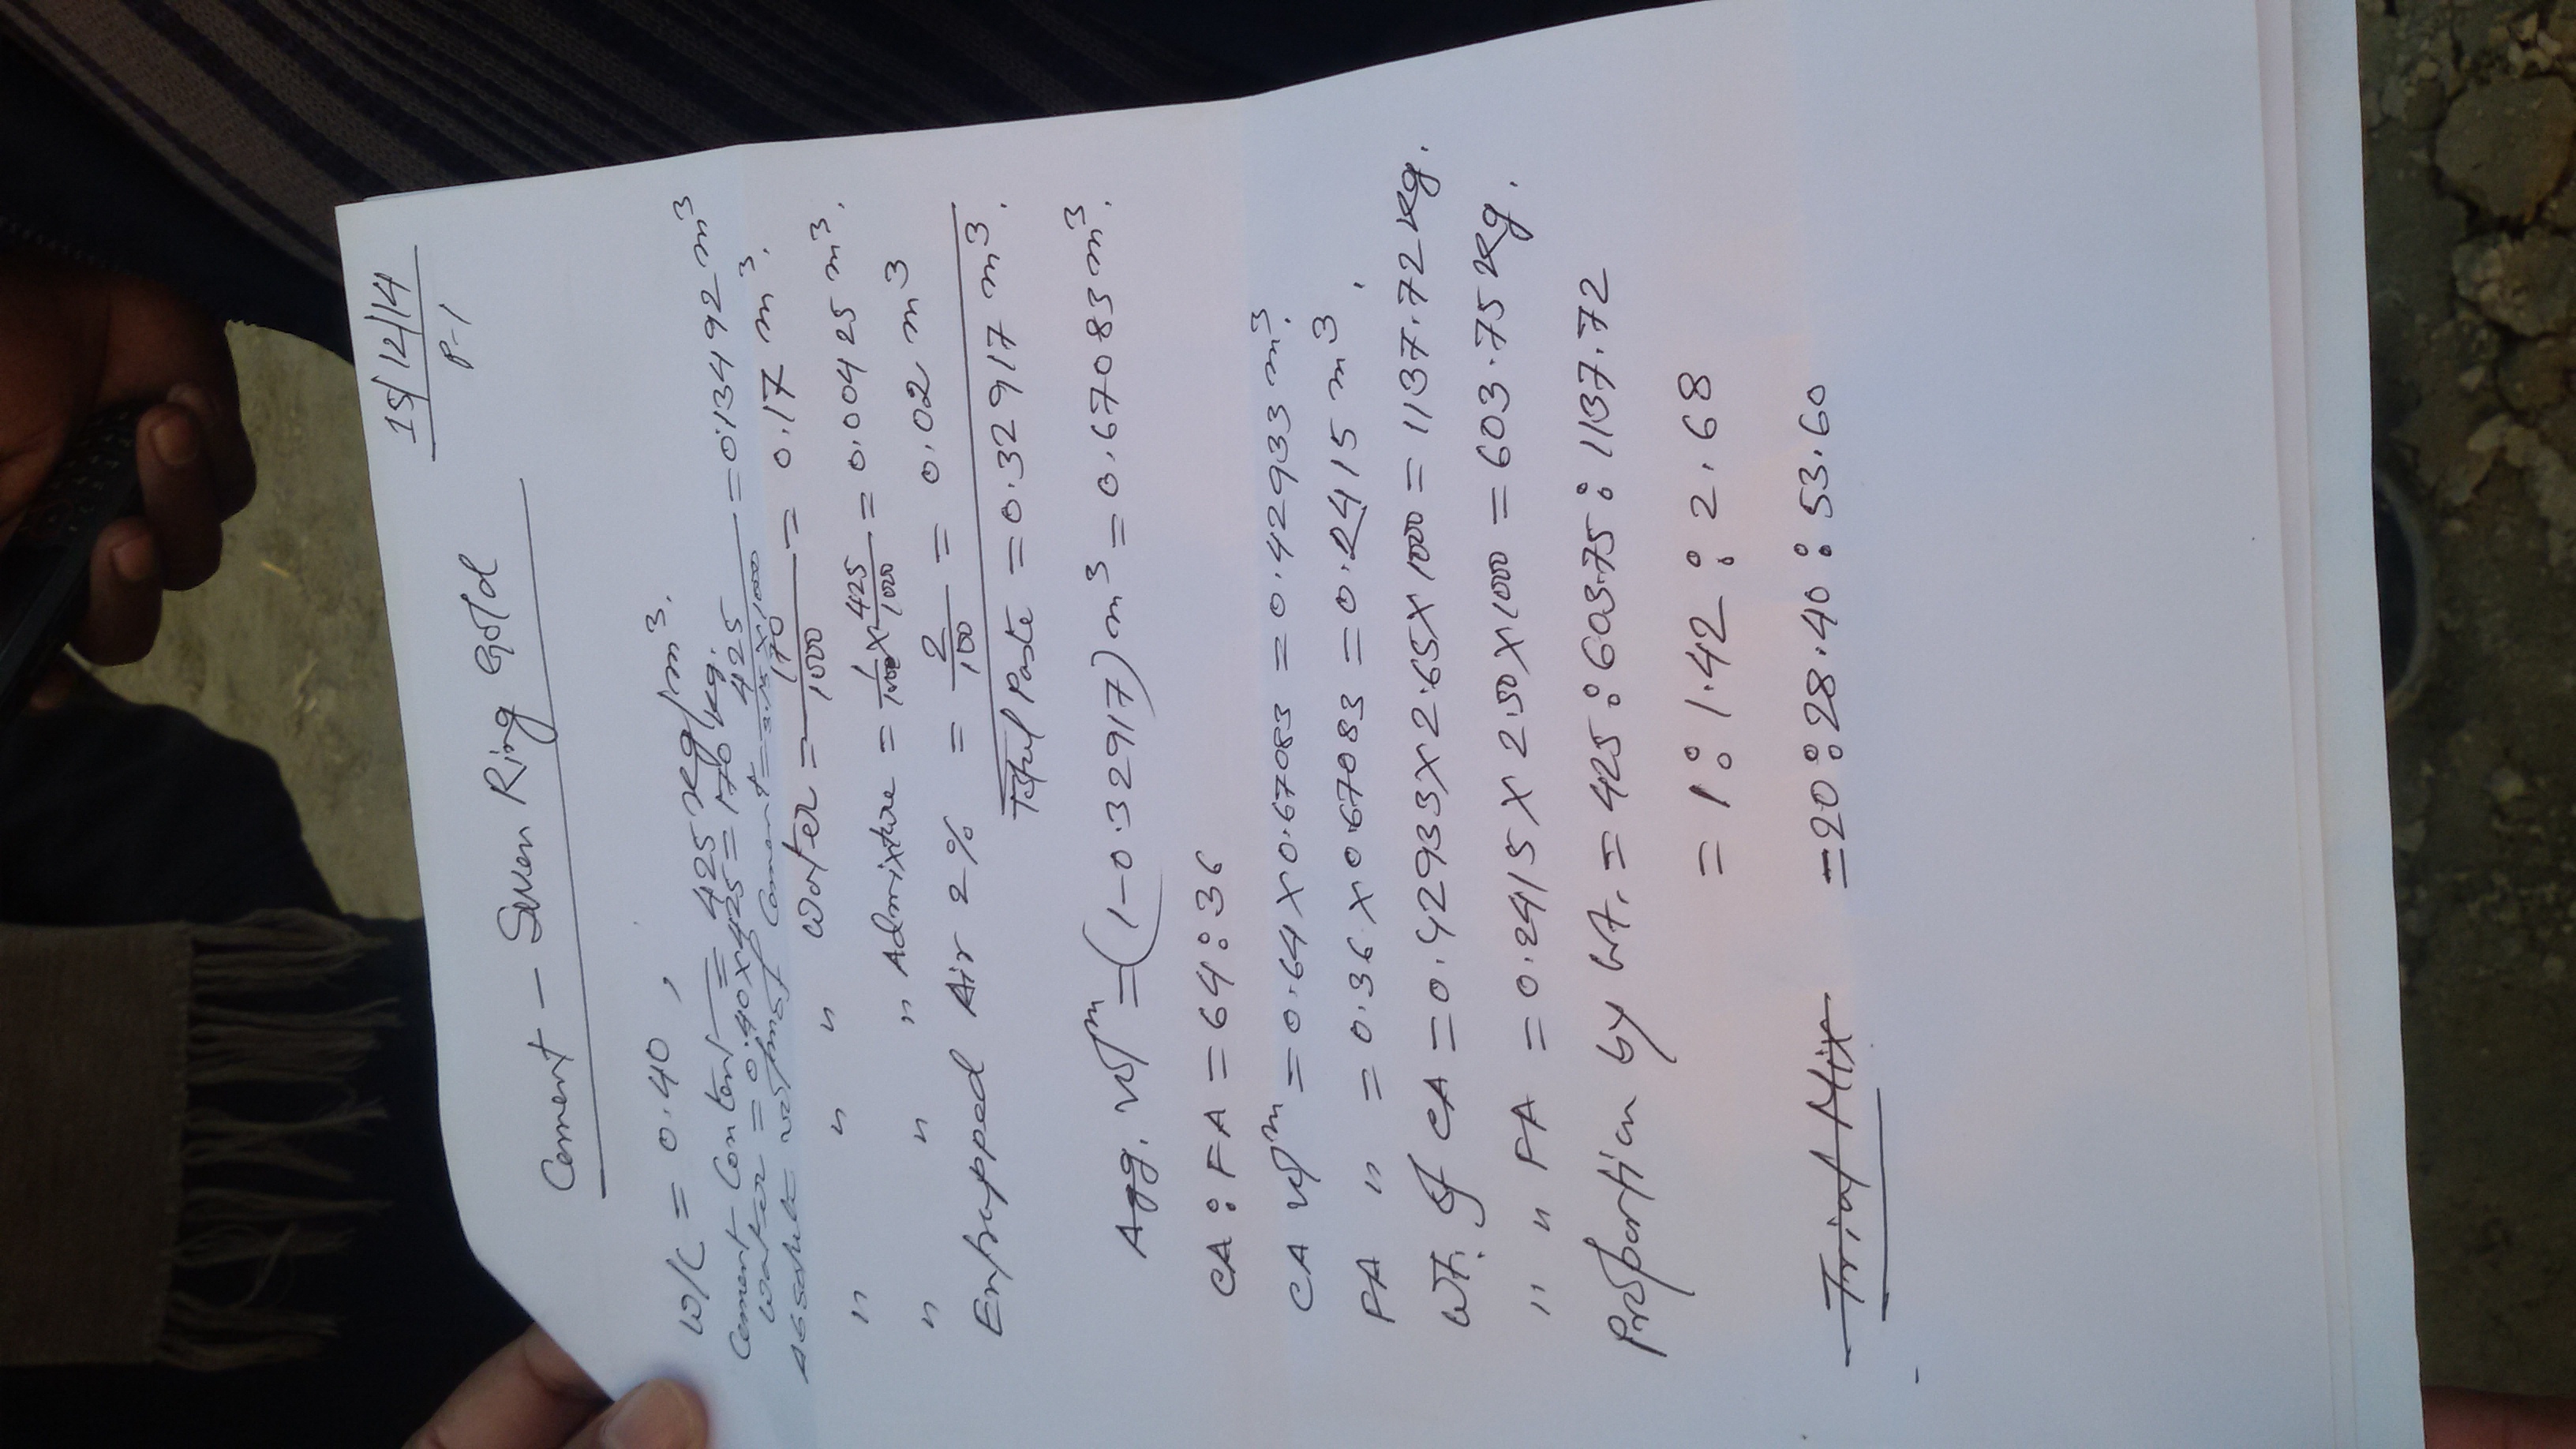 15/12/14
P-1
Cement - Seven Ring Gold
W/C = 0.40,
Cement Content = 425 kg/m³.
Water = 0.40x425 = 170 kg.
Absolute volm of Cement = 425/3.15x1000 = 0.13492 m³
" " " Water = 170/1000 = 0.17 m³.
" " " Admixture = 1/100 x 425/1000 = 0.00425 m³.
Entrapped Air 2% = 2/100 = 0.02 m³
Total Paste = 0.32917 m³.
Agg. volm = (1-0.32917) m³ = 0.67083 m³.
CA : FA = 64 : 36
CA volm = 0.64 x 0.67083 = 0.42933 m³.
FA " = 0.36 x 0.67083 = 0.2415 m³.
Wt. of CA = 0.42933 x 2.65 x 1000 = 1137.72 kg.
" " FA = 0.2415 x 2.50 x 1000 = 603.75 kg.
Proportion by wt. = 425 : 603.75 : 1137.72
= 1 : 1.42 : 2.68
Trial Mix = 20 : 28.40 : 53.60